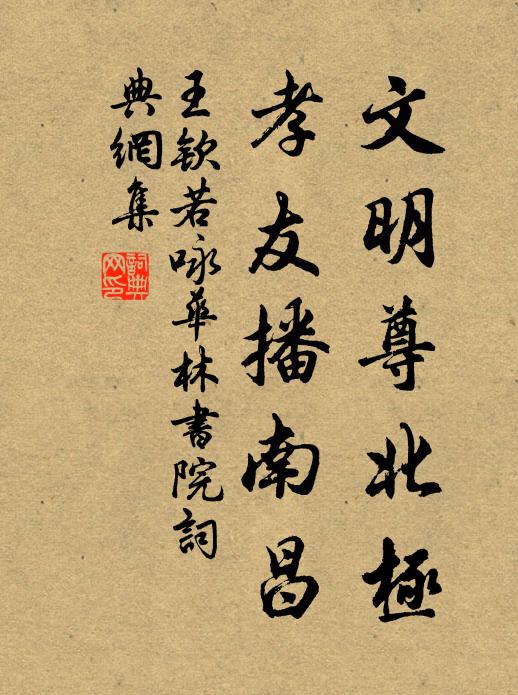 文明尊北極
孝友播南昌
王欽若咏華林書院詞
典網集
詞典網印